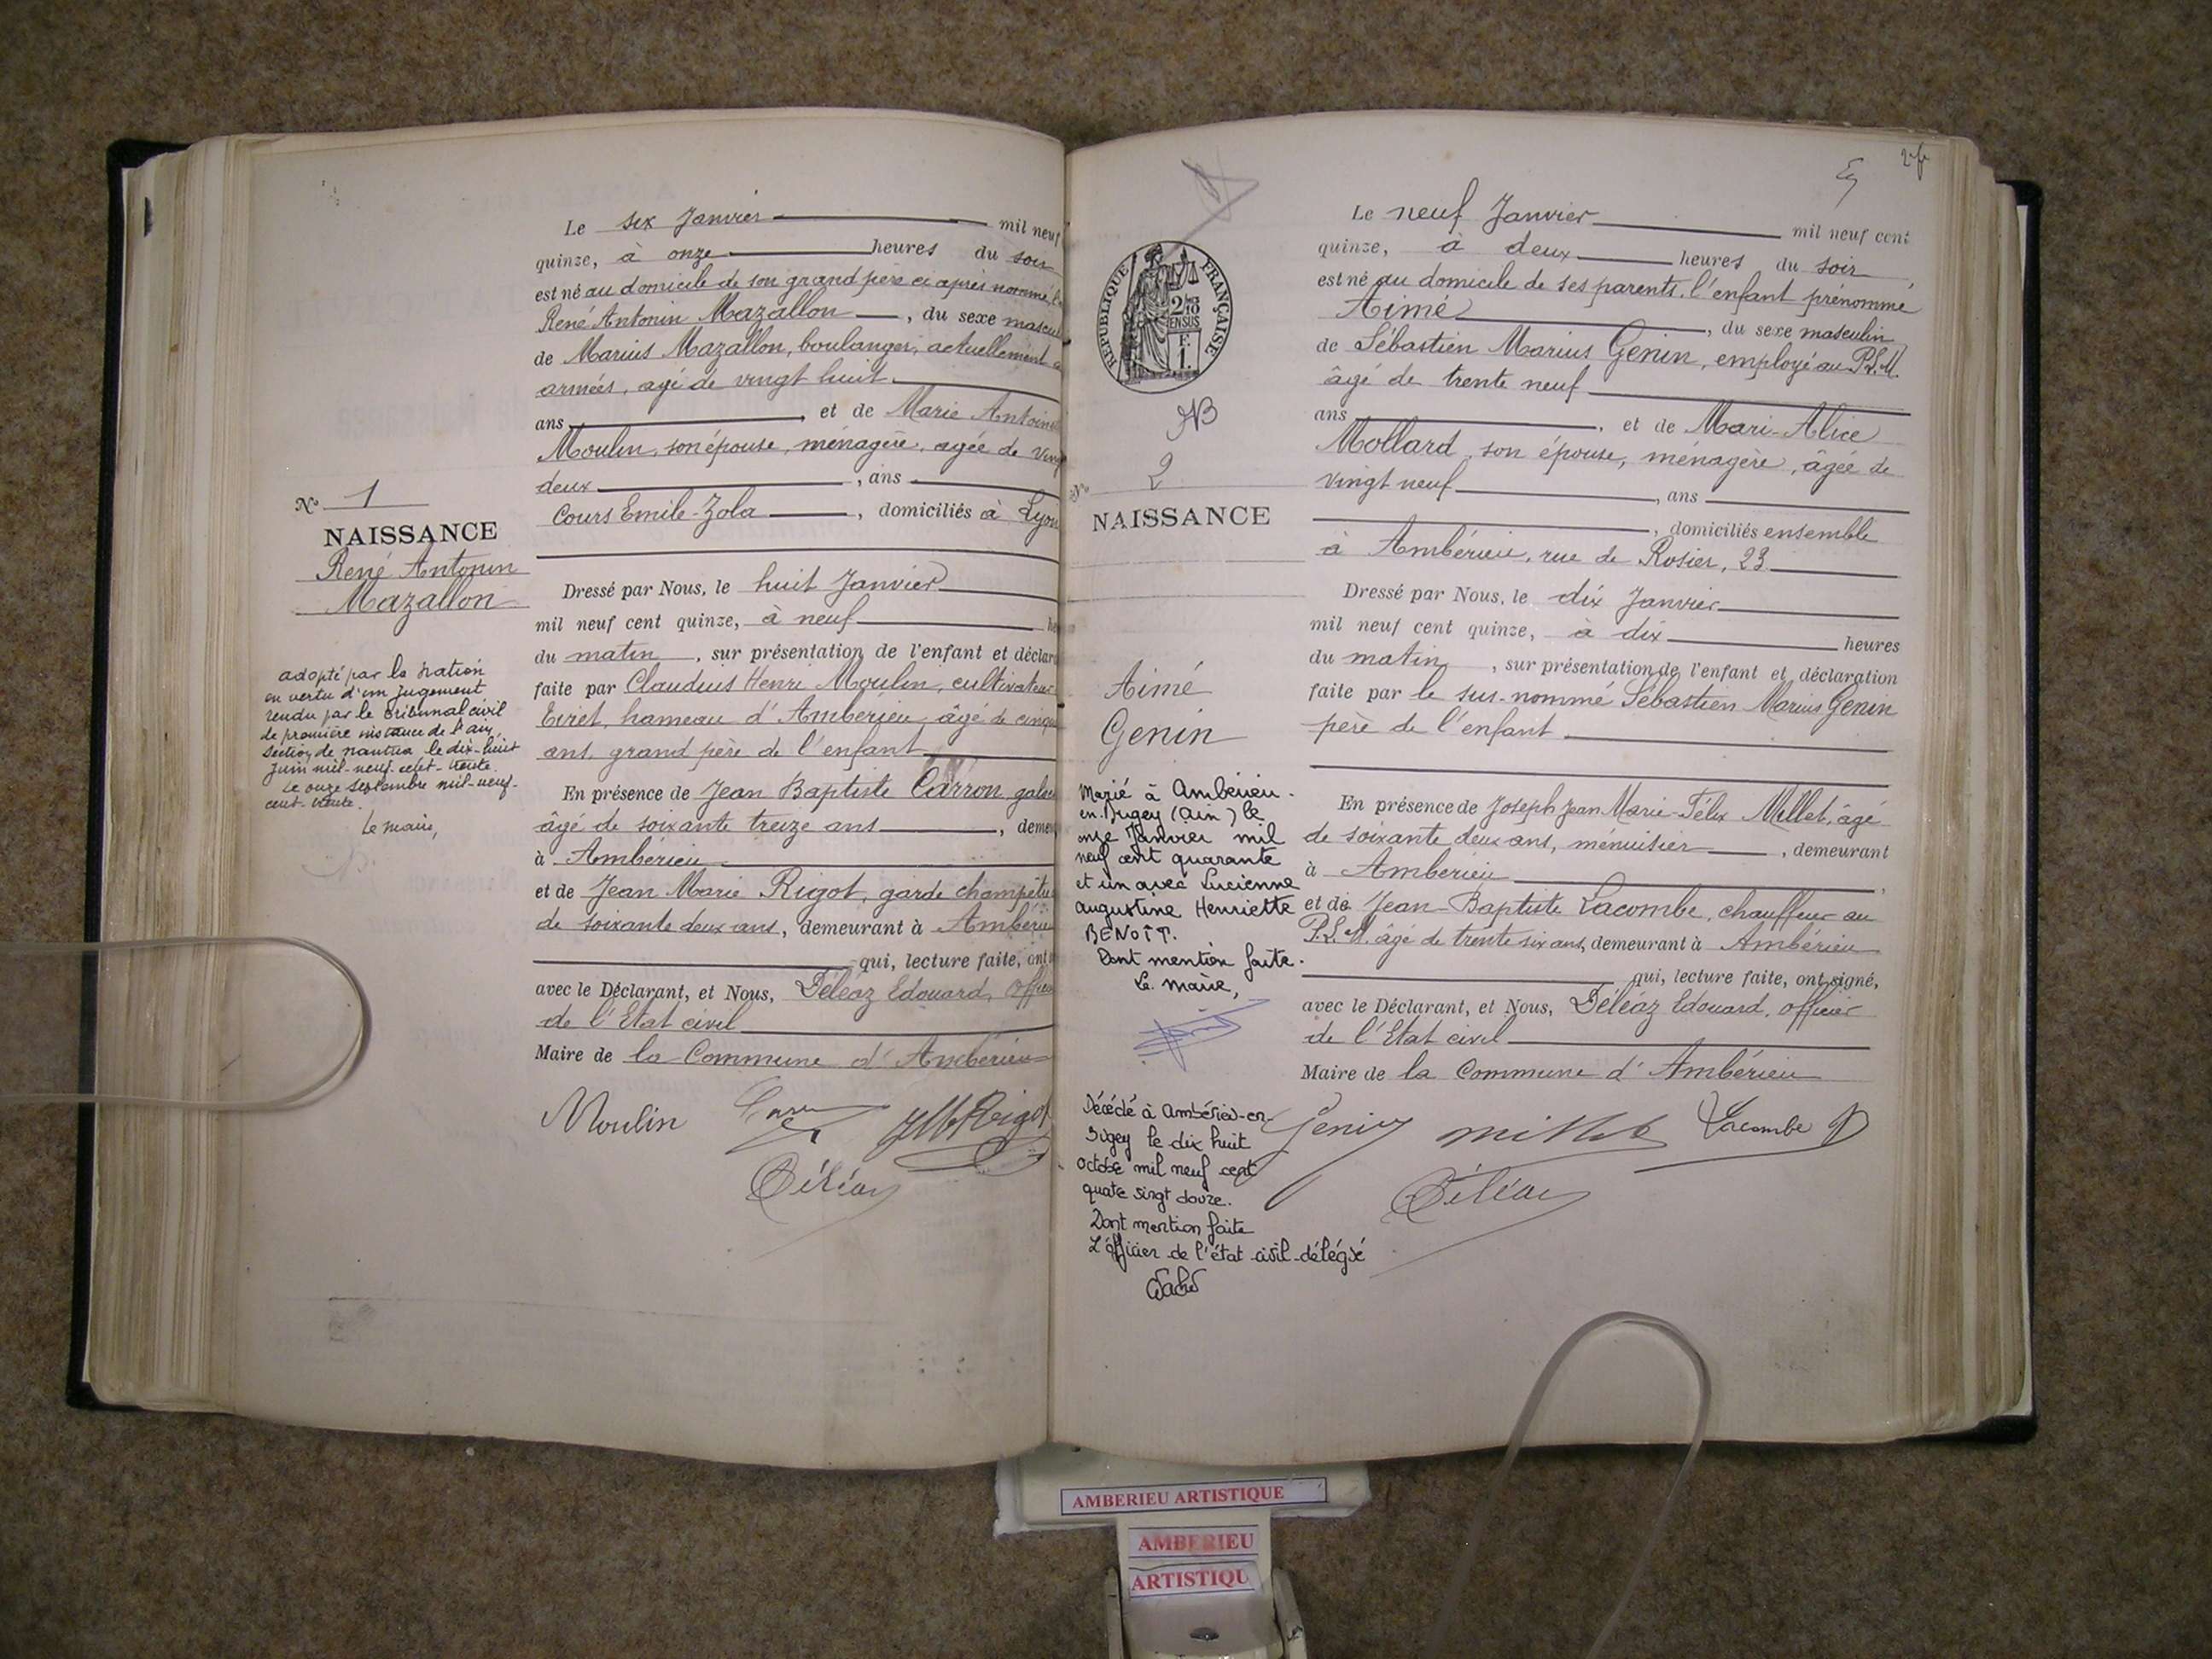 Le six Janvier mil neuf
quinze, à onze heures du soir
est né au domicile de son grand père ci après nommé,
René Antonin Mazallon, du sexe mascu
de Marius Mazallon, boulanger, actuellement
armées, agé de vingt huit
ans, et de Marie Antoin
Moulin, son épouse, ménagère, agée de ving
deux, ans
Cours Emile-Zola, domiciliés à Lyon
N° 1
NAISSANCE
René Antonin
Mazallon
Dressé par Nous, le huit Janvier
mil neuf cent quinze, à neuf he
du matin, sur présentation de l'enfant et déclar
faite par Claudius Henri Moulin, cultivateur
Tiret, hameau d'Amberieu, âgé de cinqu
ans, grand père de l'enfant
En présence de Jean Baptiste Carron,
âgé de soixante treize ans, demeu
à Ambérieu
et de Jean Marie Rigot, garde champêtre
de soixante deux ans, demeurant à Ambérieu
qui, lecture faite, ont
avec le Déclarant, et Nous, Déléaz Edouard, Offici
de l'Etat civil
Maire de la Commune d'Ambérieu
adopté par la nation
en vertu d'un jugement
rendu par le tribunal civil
de première instance de l'ain,
section de nantua le dix-huit
juin mil-neuf-cent-trente.
Le onze septembre mil-neuf-
cent-trente.
Le maire,
Moulin
JM Rigot
Déléaz
2 f
RÉPUBLIQUE FRANÇAISE
N° 2
NAISSANCE
Aimé
Genin
Marié à Ambérieu-
en-Bugey (Ain) le
onze Janvier mil
neuf cent quarante
et un avec Lucienne
Augustine Henriette
BENOÎT.
Dont mention faite.
Le maire,
Décédé à Ambérieu-en-
Bugey le dix huit
octobre mil neuf cent
quatre vingt douze.
Dont mention faite
L'officier de l'état civil délégué
Le neuf Janvier mil neuf cent
quinze, à deux heures du soir
est né au domicile de ses parents, l'enfant prénommé
Aimé, du sexe masculin
de Sébastien Marius Genin, employé au P.L.M.
âgé de trente neuf
ans, et de Mari-Alice
Mollard, son épouse, ménagère, âgée de
vingt neuf, ans
, domiciliés ensemble
à Ambérieu, rue de Rosier, 23
Dressé par Nous, le dix Janvier
mil neuf cent quinze, à dix heures
du matin, sur présentation de l'enfant et déclaration
faite par le sus-nommé Sébastien Marius Genin
père de l'enfant
En présence de Joseph Jean Marie-Félix Millet, âgé
de soixante deux ans, ménuisier, demeurant
à Ambérieu
et de Jean-Baptiste Lacombe, chauffeur au
P.L.M. âgé de trente six ans, demeurant à Ambérieu
qui, lecture faite, ont signé,
avec le Déclarant, et Nous, Déléaz Edouard, officier
de l'Etat civil
Maire de la Commune d'Ambérieu
Genin Millet Lacombe
Déléaz
AMBERIEU ARTISTIQUE
AMBERIEU
ARTISTIQU